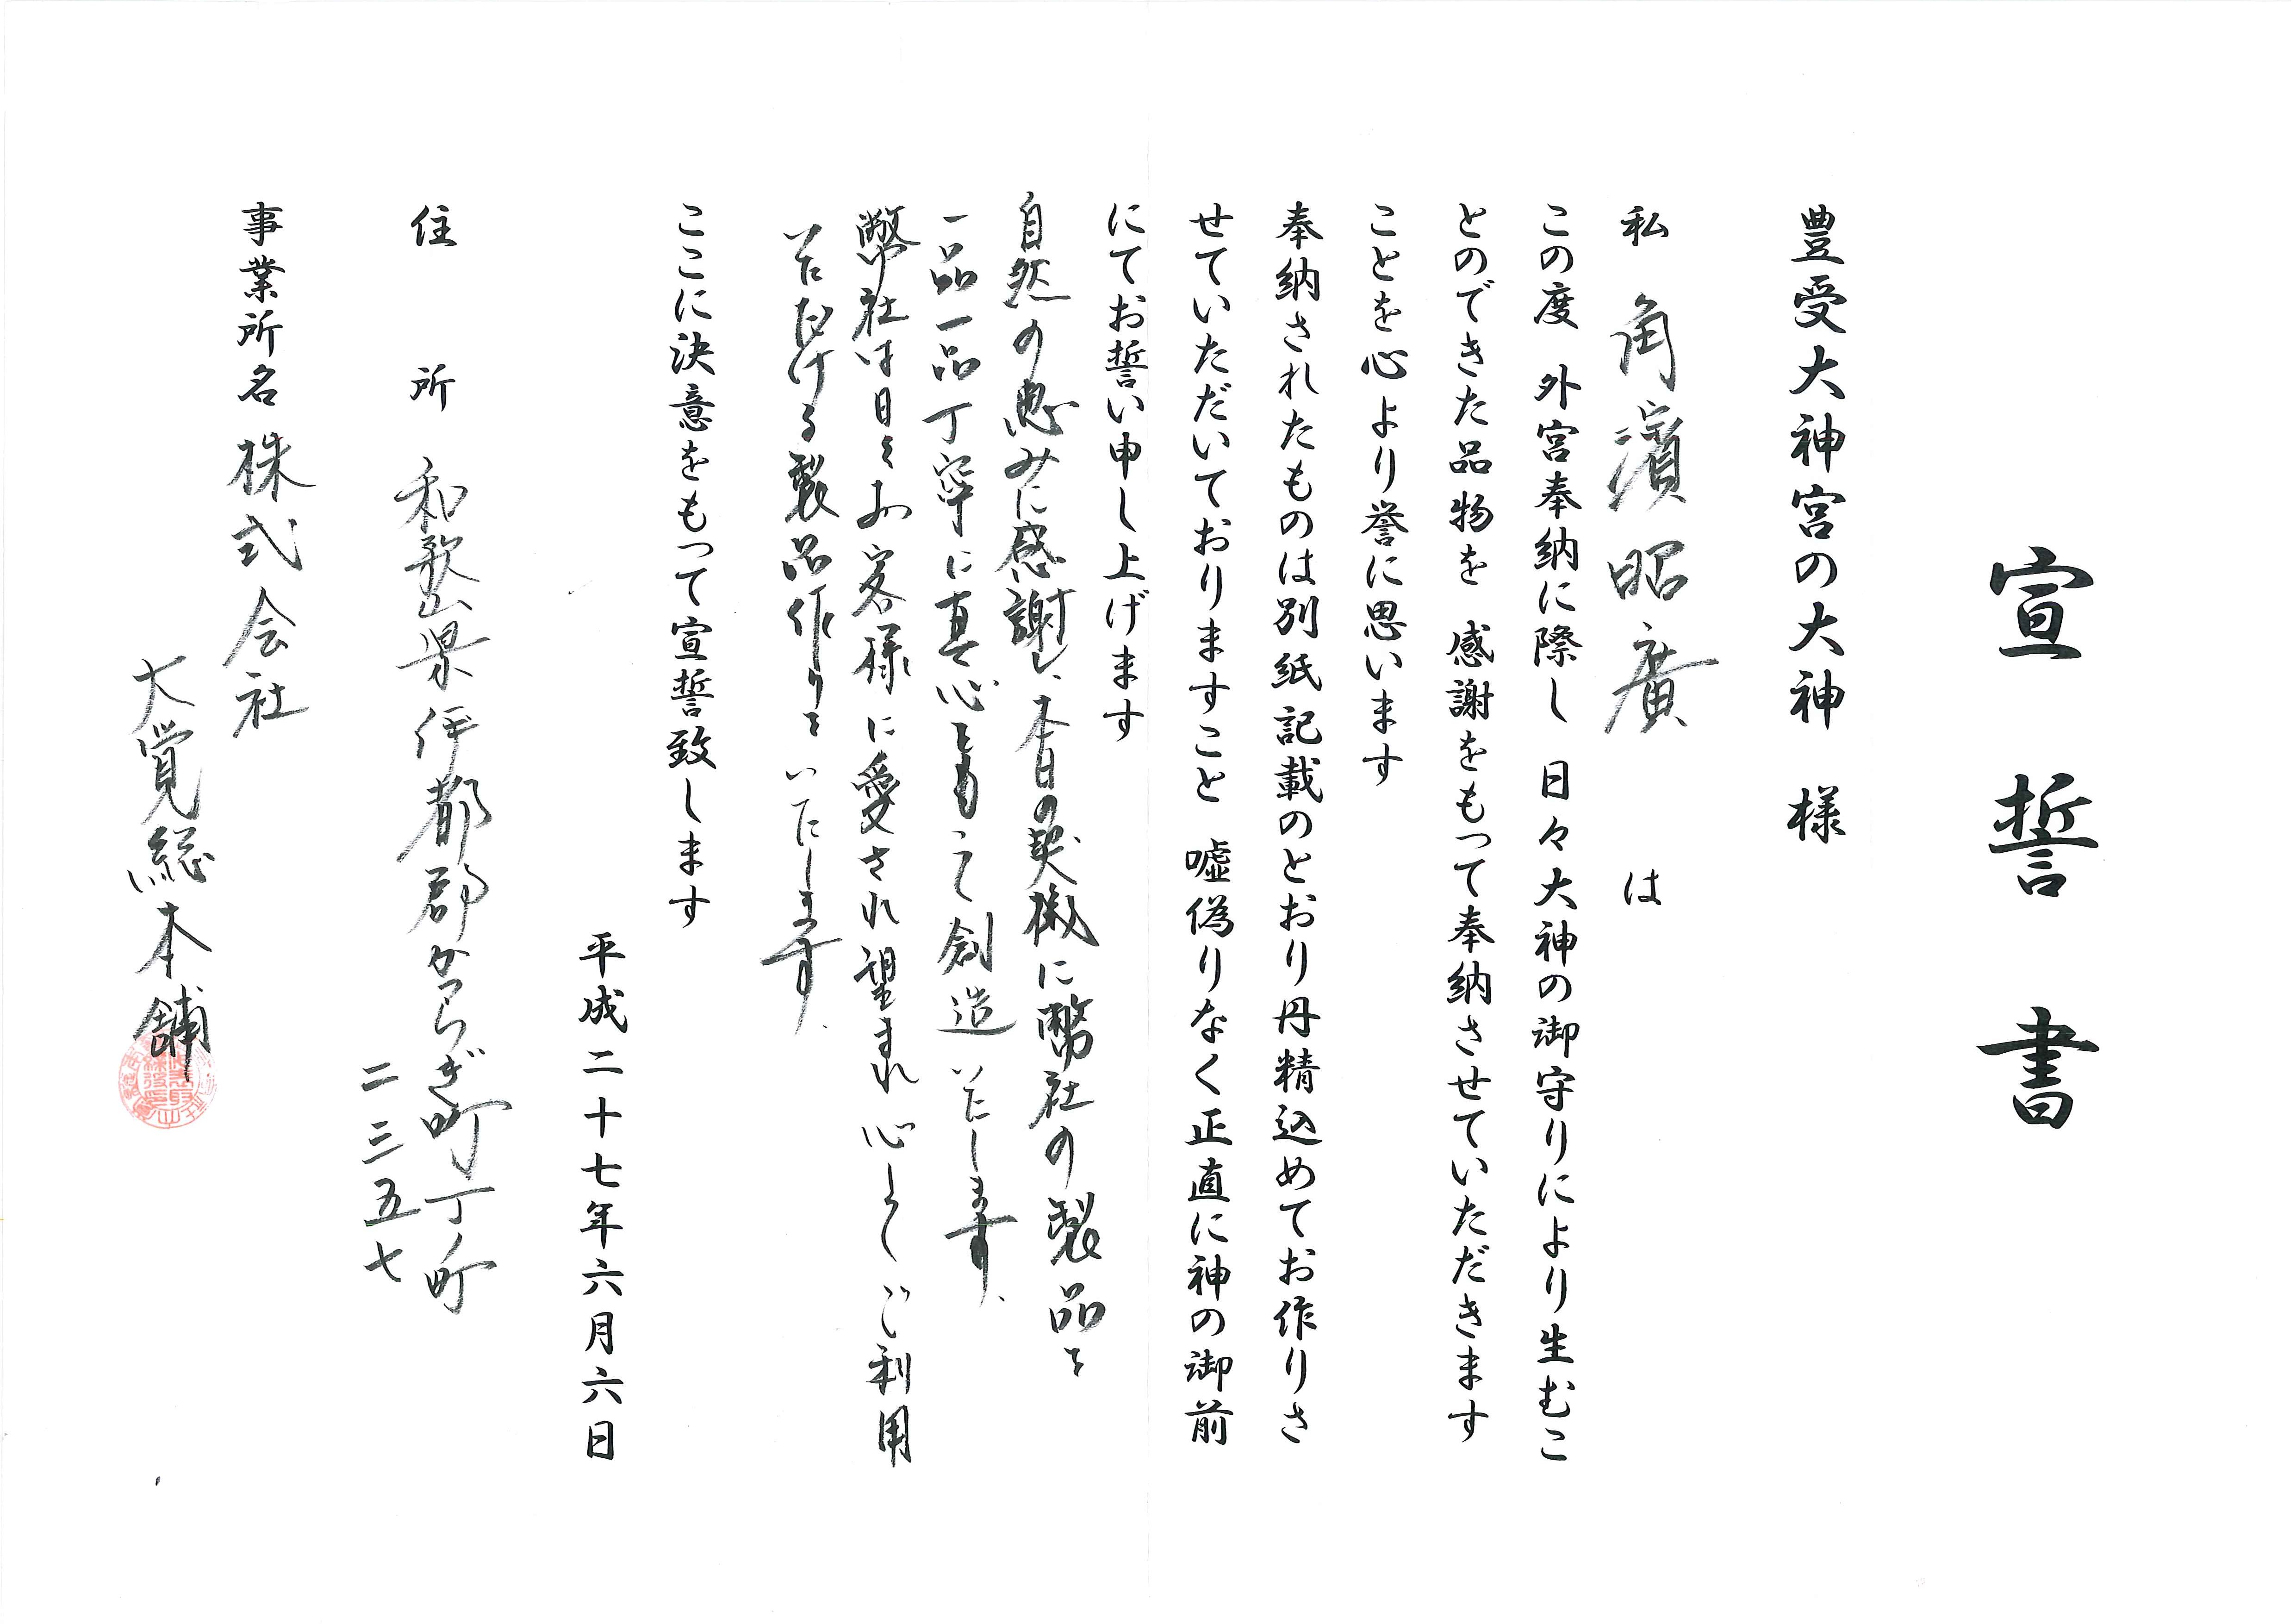 宣誓書
豊受大神宮の大神 様
私 角濱昭廣 は
この度 外宮奉納に際し 日々大神の御守りにより生むこ
とのできた品物を 感謝をもって奉納させていただきます
ことを心より誉に思います
奉納されたものは別紙記載のとおり丹精込めてお作りさ
せていただいておりますこと 嘘偽りなく正直に神の御前
にてお誓い申し上げます
自然の恵みに感謝し、本日の契機に幣社の製品を
一品一品丁寧に真心をもって創造いたします。
幣社は日々お客様に愛され望まれ心よくご利用
いただける製品作りをいたします。
ここに決意をもって宣誓致します
平成二十七年六月六日
住所 和歌山県伊都郡かつらぎ町丁町
二三五七
事業所名 株式会社
大覚総本舗